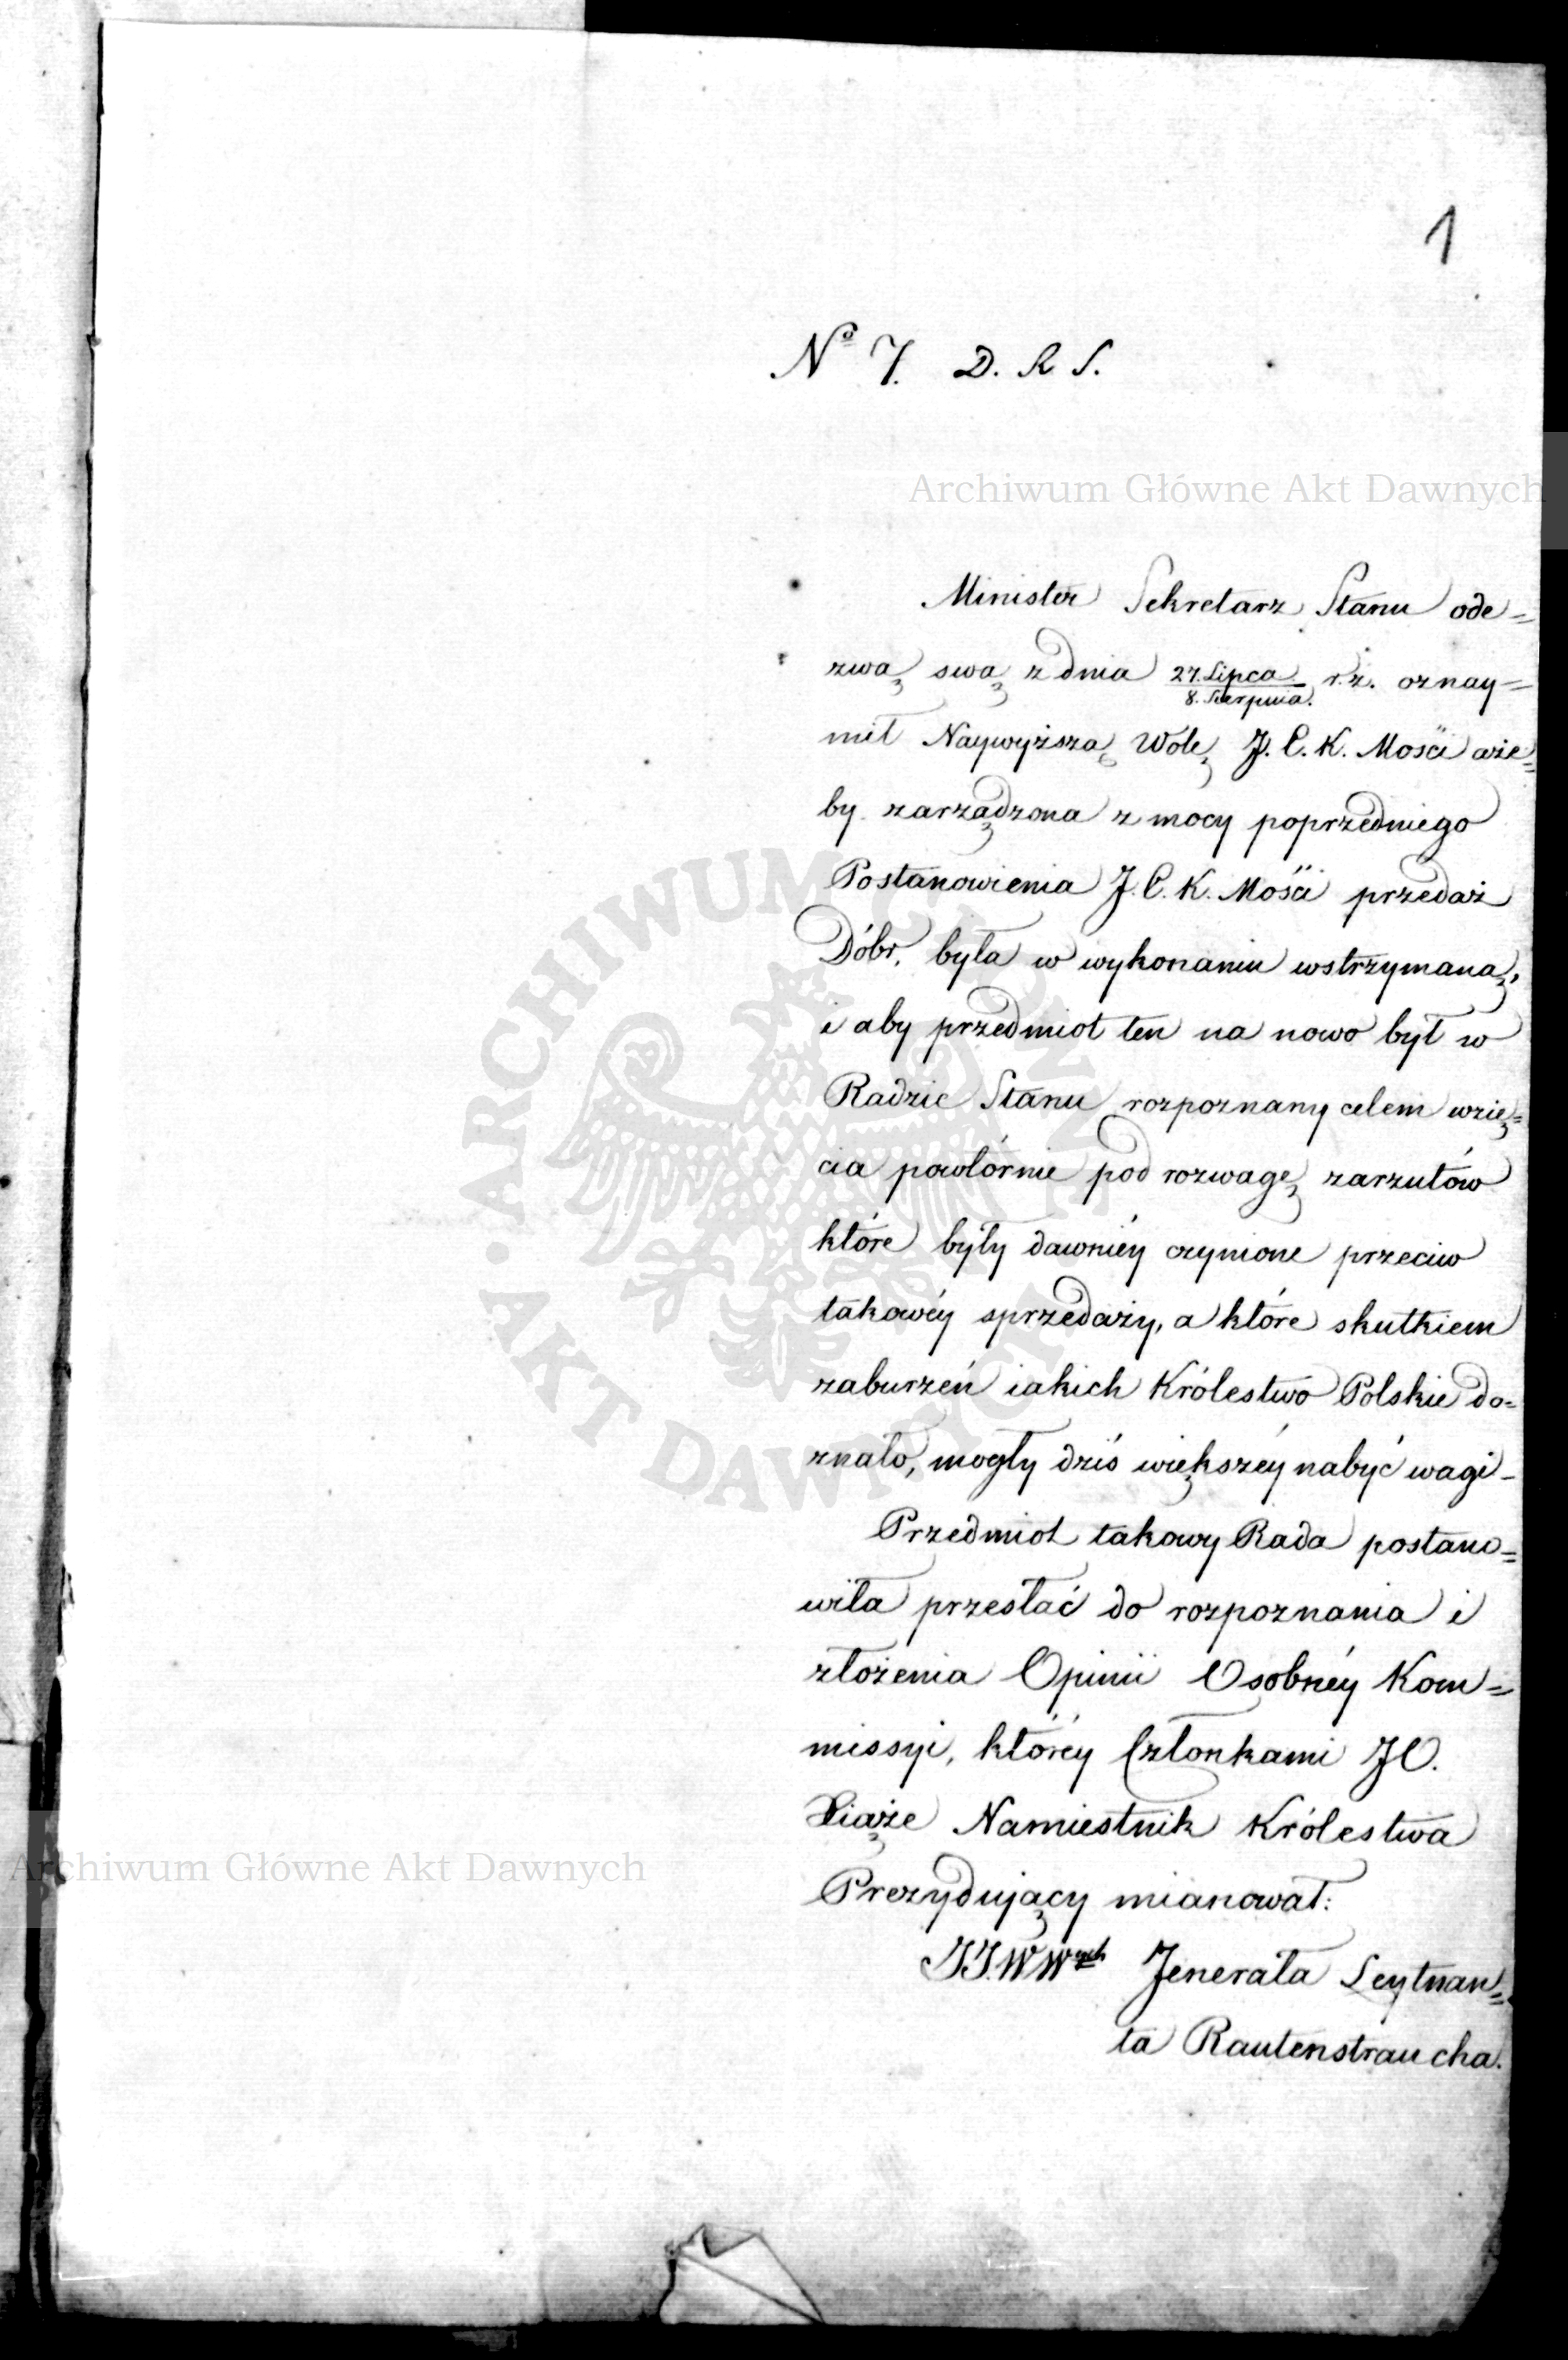 1
Nº 7. D. R S.
Archiwum Główne Akt Dawnych
Minister Sekretarz Stanu ode=
zwą swą z dnia 27. Lipca / 8. Sierpnia. r. z. oznay=
mił Naywyższą Wolę J. C. K. Mości aże=
by zarządzona z mocy poprzedniego
Postanowienia J. C. K. Mości przedaż
Dóbr, była w wykonaniu wstrzymaną,
i aby przedmiot ten na nowo był w
Radzie Stanu rozpoznany celem wzię=
cia powtórnie pod rozwagę zarzutów
które były dawniéy czynione przeciw
takowéy sprzedaży, a które skutkiem
zaburzeń iakich Królestwo Polskie do=
znało, mogły dziś większéy nabyć wagi_
Przedmiot takowy Rada postano=
wiła przesłać do rozpoznania i
złożenia Opinii Osobnéy Kom=
missyi, któréy Członkami JO.
Xiąże Namiestnik Królestwa
Prezydujący mianował:
JJ.WWych Jenerała Leytnan=
ta Rautenstraucha.
Archiwum Główne Akt Dawnych
ARCHIWUM GŁÓWNE AKT DAWNYCH